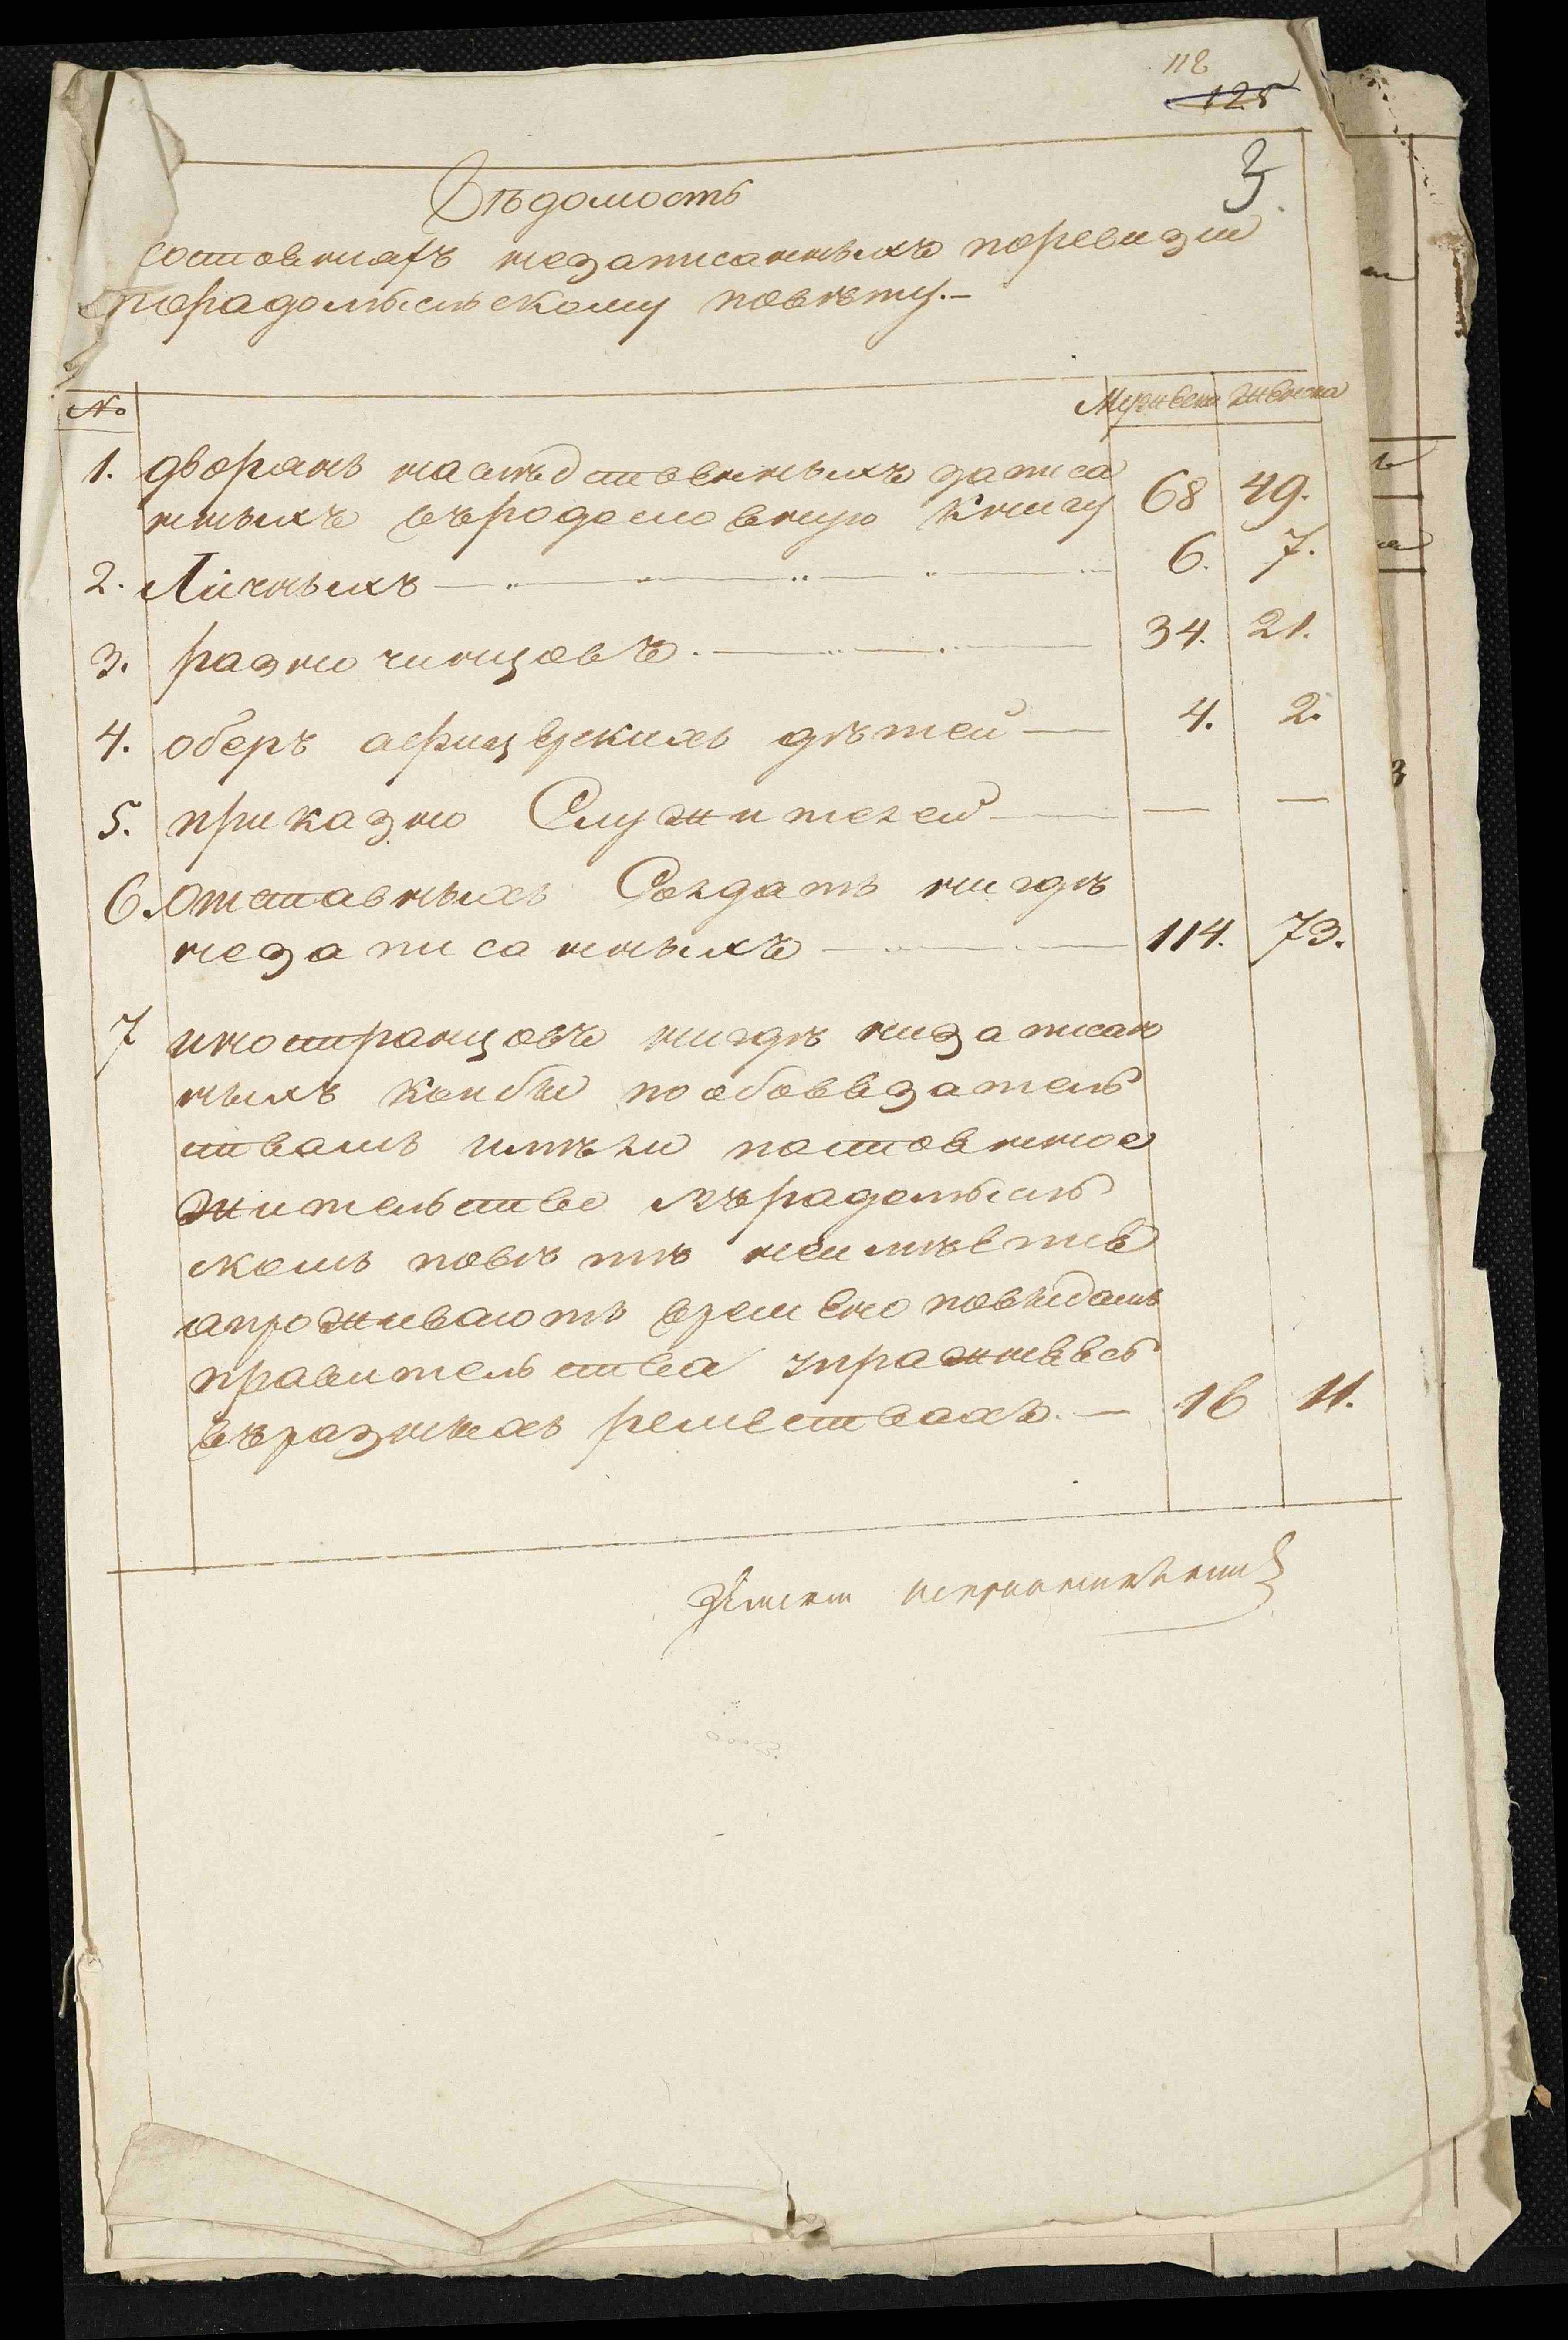 118
125
3
Вѣдомость
состоянiяхъ незаписанныхъ поревизiи
порадомысльскому повѣту.-
№ Мужеска Женска
1. дворянъ наслѣдственныхъ записа
нныхъ въродословную книгу 68 49.
2. Личныхъ 6. 7.
3. разночинцовъ. 34. 21.
4. оберъ афицерскихъ дѣтей 4. 2.
5. приказно Служителей — —
6. Отставныхъ Солдатъ нигдѣ
незаписанныхъ 114. 73.
7 иностранцовъ нигдѣ низаписан
ныхъ кои бы пообовязатель
ствамъ имѣли постоянное
жительство въ радомысль
скомъ повѣтѣ неимѣется
апроживаютъ времено повидамъ
правительства упражняясь
въразныхъ ремествахъ. — 16 11.